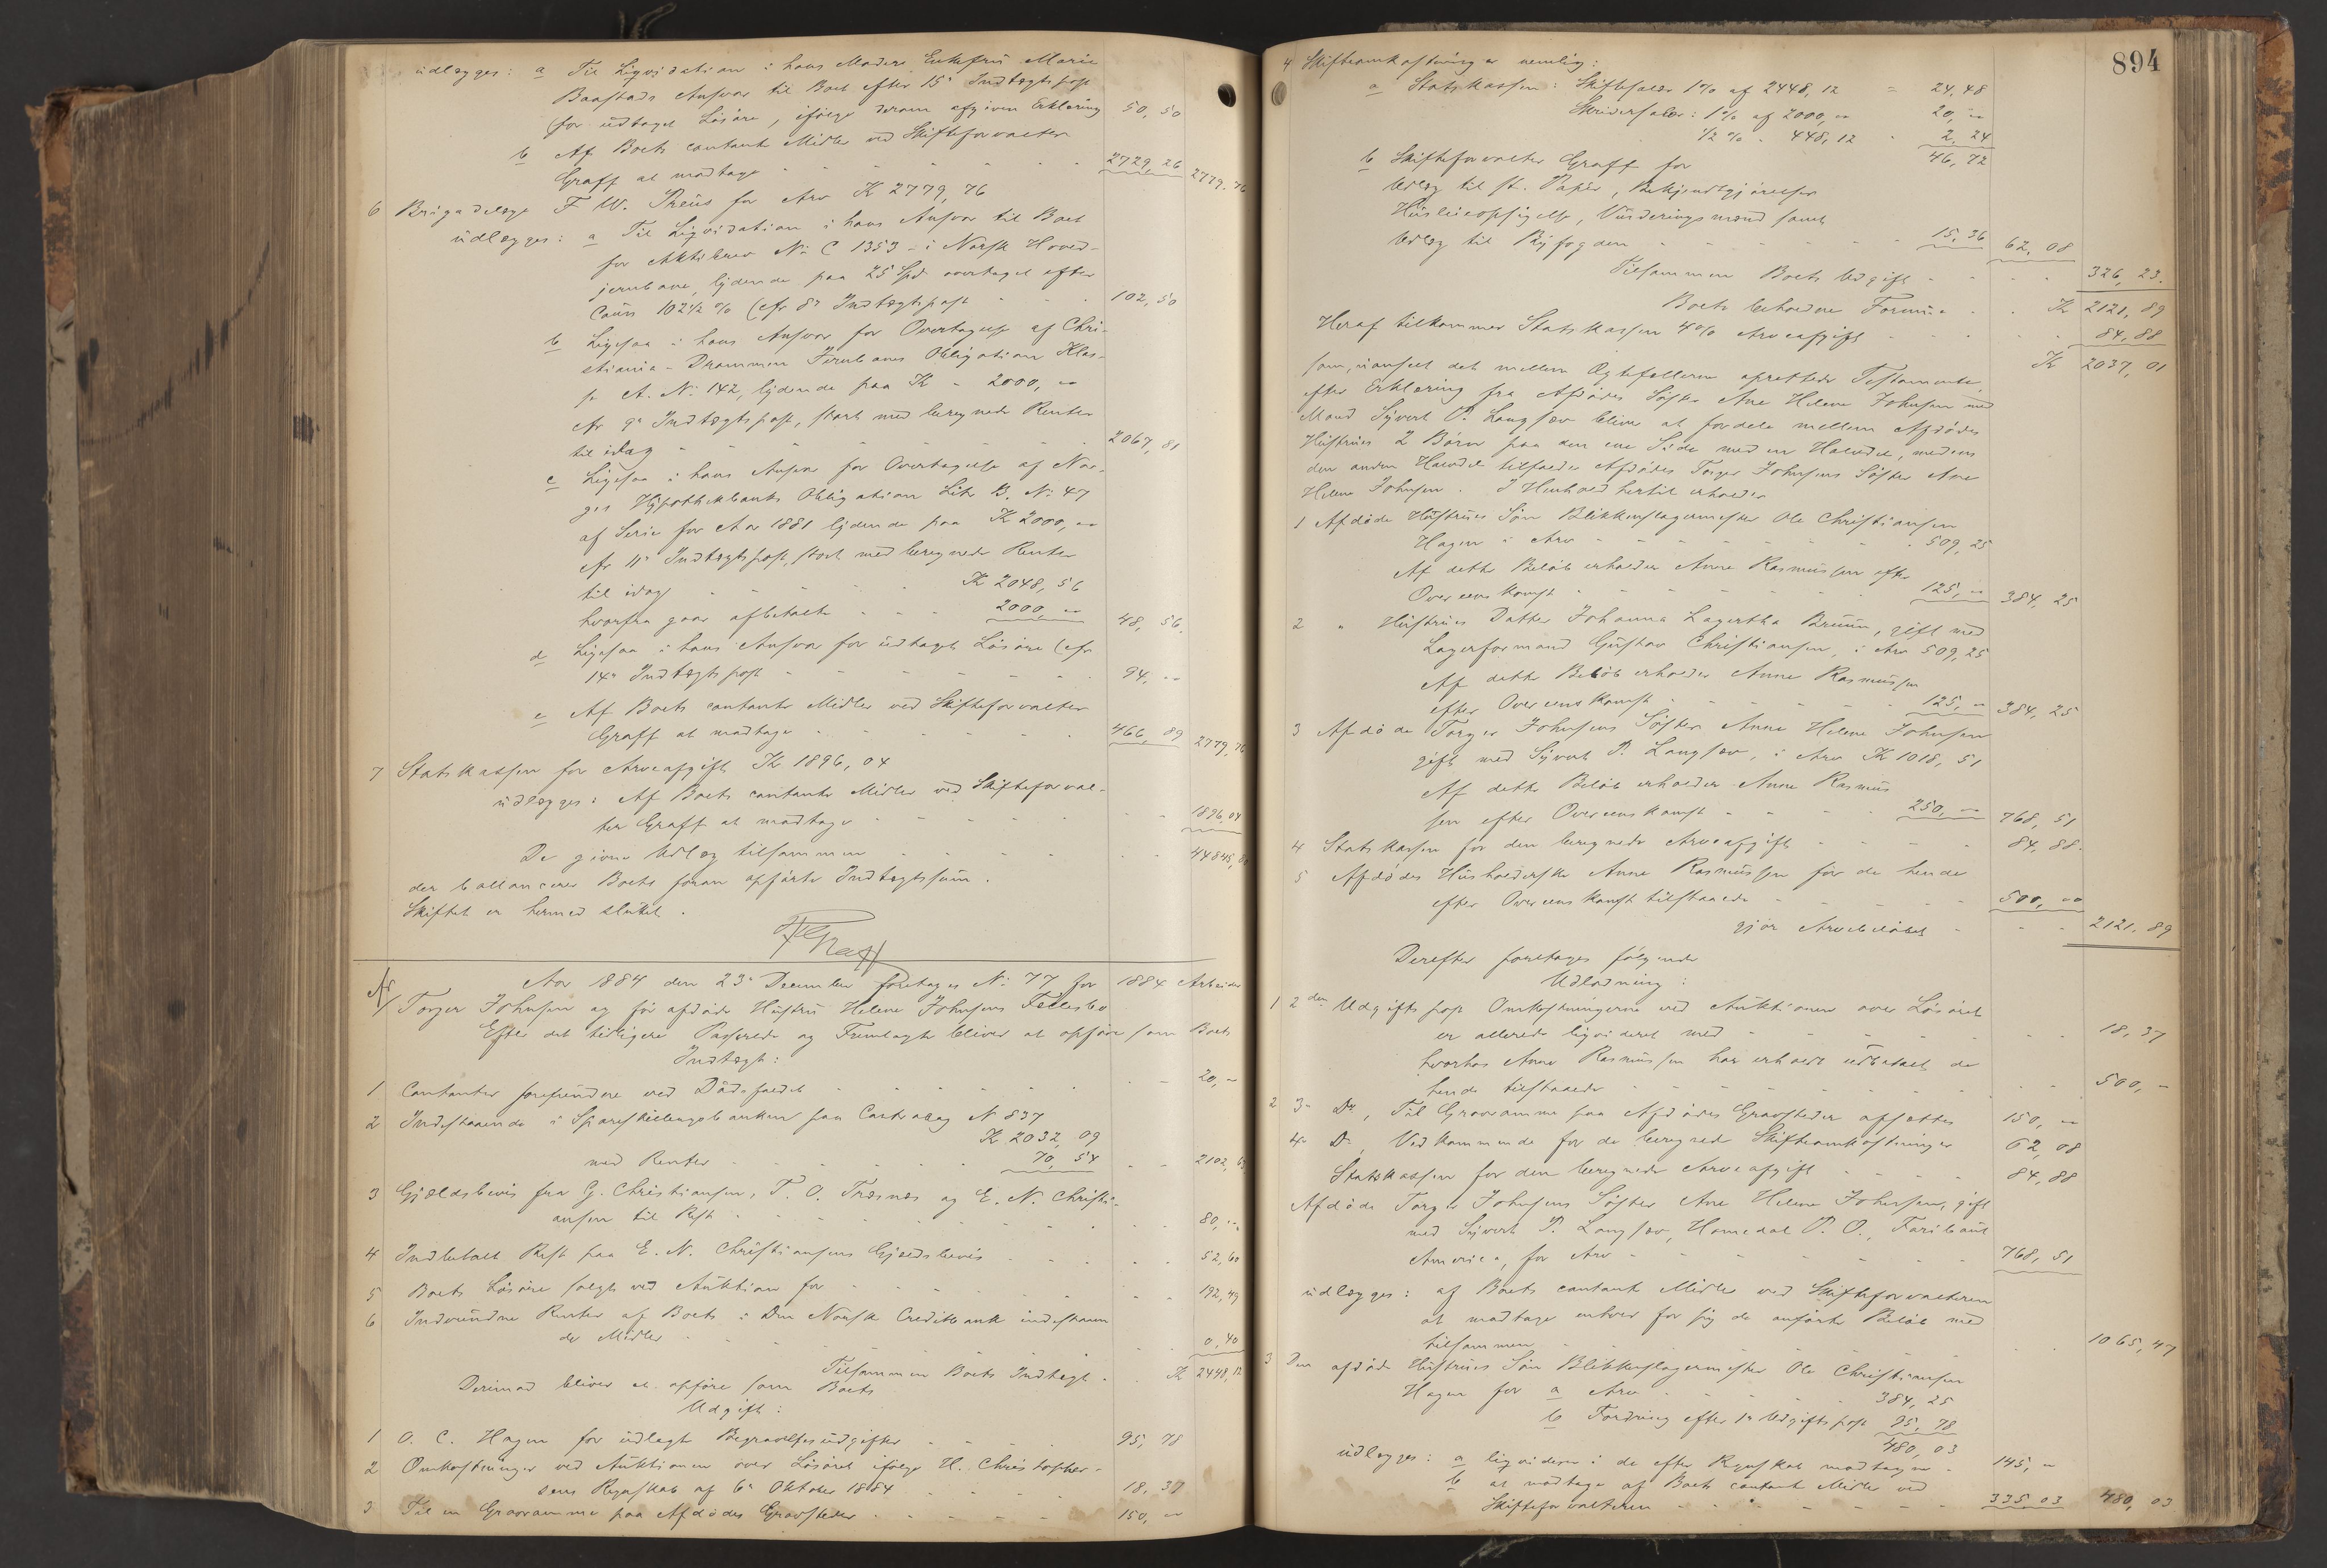 udlægges: a Til Liqvidation i hans Moders Enkefru Marie
Baastads Ansvar til Boet efter 15de Indtægtspost
(for udtaget Løsøre, ifølge derom afgiven Erklæring 50,50
b Af Boets contante Midler ved Skifteforvalter
Graff at modtage - - - 2729,26 2779,76
6 Brigadelæge F. W. Preus for Arv K 2779,76
udlægges: a Til Liqvidation i hans Ansvar til Boet
for Aktiebrev No C 1353 - i Norsk Hoved-
jernbane, lydende paa 25 Spd overtaget efter
Cours 102 1/2 % (cfr 8de Indtægtspost - - - 102,50
b Ligesaa i hans Ansvar for Overtagelse af Chri-
stiania - Drammen Jernbanes Obligation Klas-
se A. No 142, lydende paa K 2000, -
cfr 9de Indtægtspost, stort med beregnede Renter
til idag - - - 2067,81
c Ligesaa i hans Ansvar for Overtagelse af Nor-
ges Hypothekbanks Obligation Litr B. No 47
af Serie for Aar 1881 lydende paa K 2000, -
cfr 11te Indtægtspost, stort med beregnede Renter
til idag - - - K 2048,56
hvorfra gaar afbetalt - - - 2000, - 48,56.
d Ligesaa i hans Ansvar for udtaget Løsøre (cfr
14de Indtægtspost - - - 94, -
e Af Boets contante Midler ved Skifteforvalter
Graff at modtage - - - 466,89 2779,76
7 Statskassen for Arveafgift K 1896,04
udlægges: Af Boets contante Midler ved Skifteforval-
ter Graff at modtage - - - 1896,04
De givne Udlæg tilsammen - - - 44845,
der ballancerer Boets foran opførte Indtægtssum.
Skiftet er hermed sluttet.
Graff
Aar 1884 den 23de December foretages No 77 for 1884 Arbeider
Torger Johnsen og før afdøde Hustru Helene Johnsens Fællesbo
Efter det tidligere Passerede og Fremlagte bliver at opføre som Boets
Indtægt:
1 Contanter forefundne ved Dødsfaldet - - - 20, -
2 Indestaaende i Spareskillingsbanken paa Contrabog N 837
K 2032,09
med Renter - - - 70,54 - - 2102,63
3 Gjældsbevis fra G. Christiansen, T. O. Træsnæs og E. N. Christi-
ansen til Rest - - - 80, -
4 Indbetalt Rest paa E. N. Christiansens Gjældsbevis - - - 52,60
5 Boets Løsøre solgt ved Auktion for - - - 192,49
6 Indvundne Renter af Boets i Den Norske Creditbank indestaaen
de Midler - - - 0,40
Tilsammen Boets Indtægt - - K 2448,12
Derimod bliver at opføre som Boets
Udgift:
1 O. C. Hagen for udlagte Begravelsesudgifter - - - 95,78
2 Omkostninger ved Auktionen over Løsøret ifølge H. Christopher-
sens Regnskab af 6te Oktober 1884 - - - 18,37
3 Til en Gravramme paa Afdødes Gravsteder - - - 150, -
894
4 Skifteomkostninger nemlig:
a Statskassen: Skiftesalær 1% af 2448,12 = 24,48
Skriversalær: 1% af 2000, - 20, -
1/2 % - 448,12 - 2,24
46,72
b Skifteforvalter Graff for
Udlæg til st. Papir, Bekjendtgjørelser
Huslieopsigelse, Vurderingsmænd samt
Udlæg til Byfogden - - - 15,36 62,08
Tilsammen Boets Udgift - - - 326,23.
Boets beholdne Formue - - K 2121,89
Heraf tilkommer Statskassen 4% Arveafgift - - - 84,88
K 2037,01
som, uanseet det mellem Ægtefællerne oprettede Testamente,
efter Erklæring fra Afdødes Søster Ane Helene Johnsen med
Mand Syvert P. Langsæv bliver at fordele mellem Afdødes
Hustrues 2 Børn paa den ene Side med en Halvdel, medens
den anden Halvdel tilfalder Afdødes Torger Johnsens Søster Ane
Helene Johnsen. I Henhold hertil erholder
1 Afdøde Hustrues Søn Blikkenslagermester Ole Christiansen
Hagen i Arv - - - 509,25
Af dette Beløb erholder Anne Rasmussen efter
Overenskomst - - - 125, - 384,25
2 " Hustrues Datter Johanna Lagertha Bruun, gift med
Lagerformand Gustav Christiansen, i Arv 509,25
Af dette Beløb erholder Anne Rasmussen
efter Overenskomst - - - 125, - 384,25
3 Afdøde Torger Johnsens Søster Anne Helene Johnsen
gift med Syvert P. Langsæv, i Arv K 1018,51
Af dette Beløb erholder Anne Rasmus
sen efter Overenskomst - - - 250, - 768,51
4 Statskassen for den beregnede Arveafgift - - - 84,88.
5 Afdødes Husholderske Anne Rasmussen for de hende
efter Overenskomst tilstaaede - - - 500, -
gjør Arvebeløbet - - - 2121.89
Derefter foretages følgende
Udlodning:
1 2den Udgiftspost Omkostningerne ved Auktionen over Løsøret
er allerede liqvideret med - - - 18,37
hvorhos Anne Rasmussen har erholdt udbetalt de
hende tilstaaede - - - 500, -
2 3die Do, Til Gravramme paa Afdødes Gravsteder afsættes 150, -
4de Do, Vedkommende for de beregnede Skifteomkostninger 62,08
Statskassen for den beregnede Arveafgift - - - 84,88
Afdøde Torger Johnsens Søster Ane Helene Johnsen, gift
med Syvert P. Langsæv, Homedal P. O., Faribault
America, for Arv - - - 768,51
udlægges: af Boets contante Midler ved Skifteforvalteren
at modtage enhver for sig de anførte Beløb med
tilsammen - - - 1065,47
3 Den afdøde Hustrues Søn Blikkenslagermester Ole Christiansen
Hagen for a Arv - - - 384,25
b Fordring efter 1ste Udgiftspost 95,78
480,03
udlægges: a liqviderer i de efter Regnskab modtagne - 145, -
b at modtage af Boets contante Midler ved
Skifteforvalteren - - - 335,03 480,03